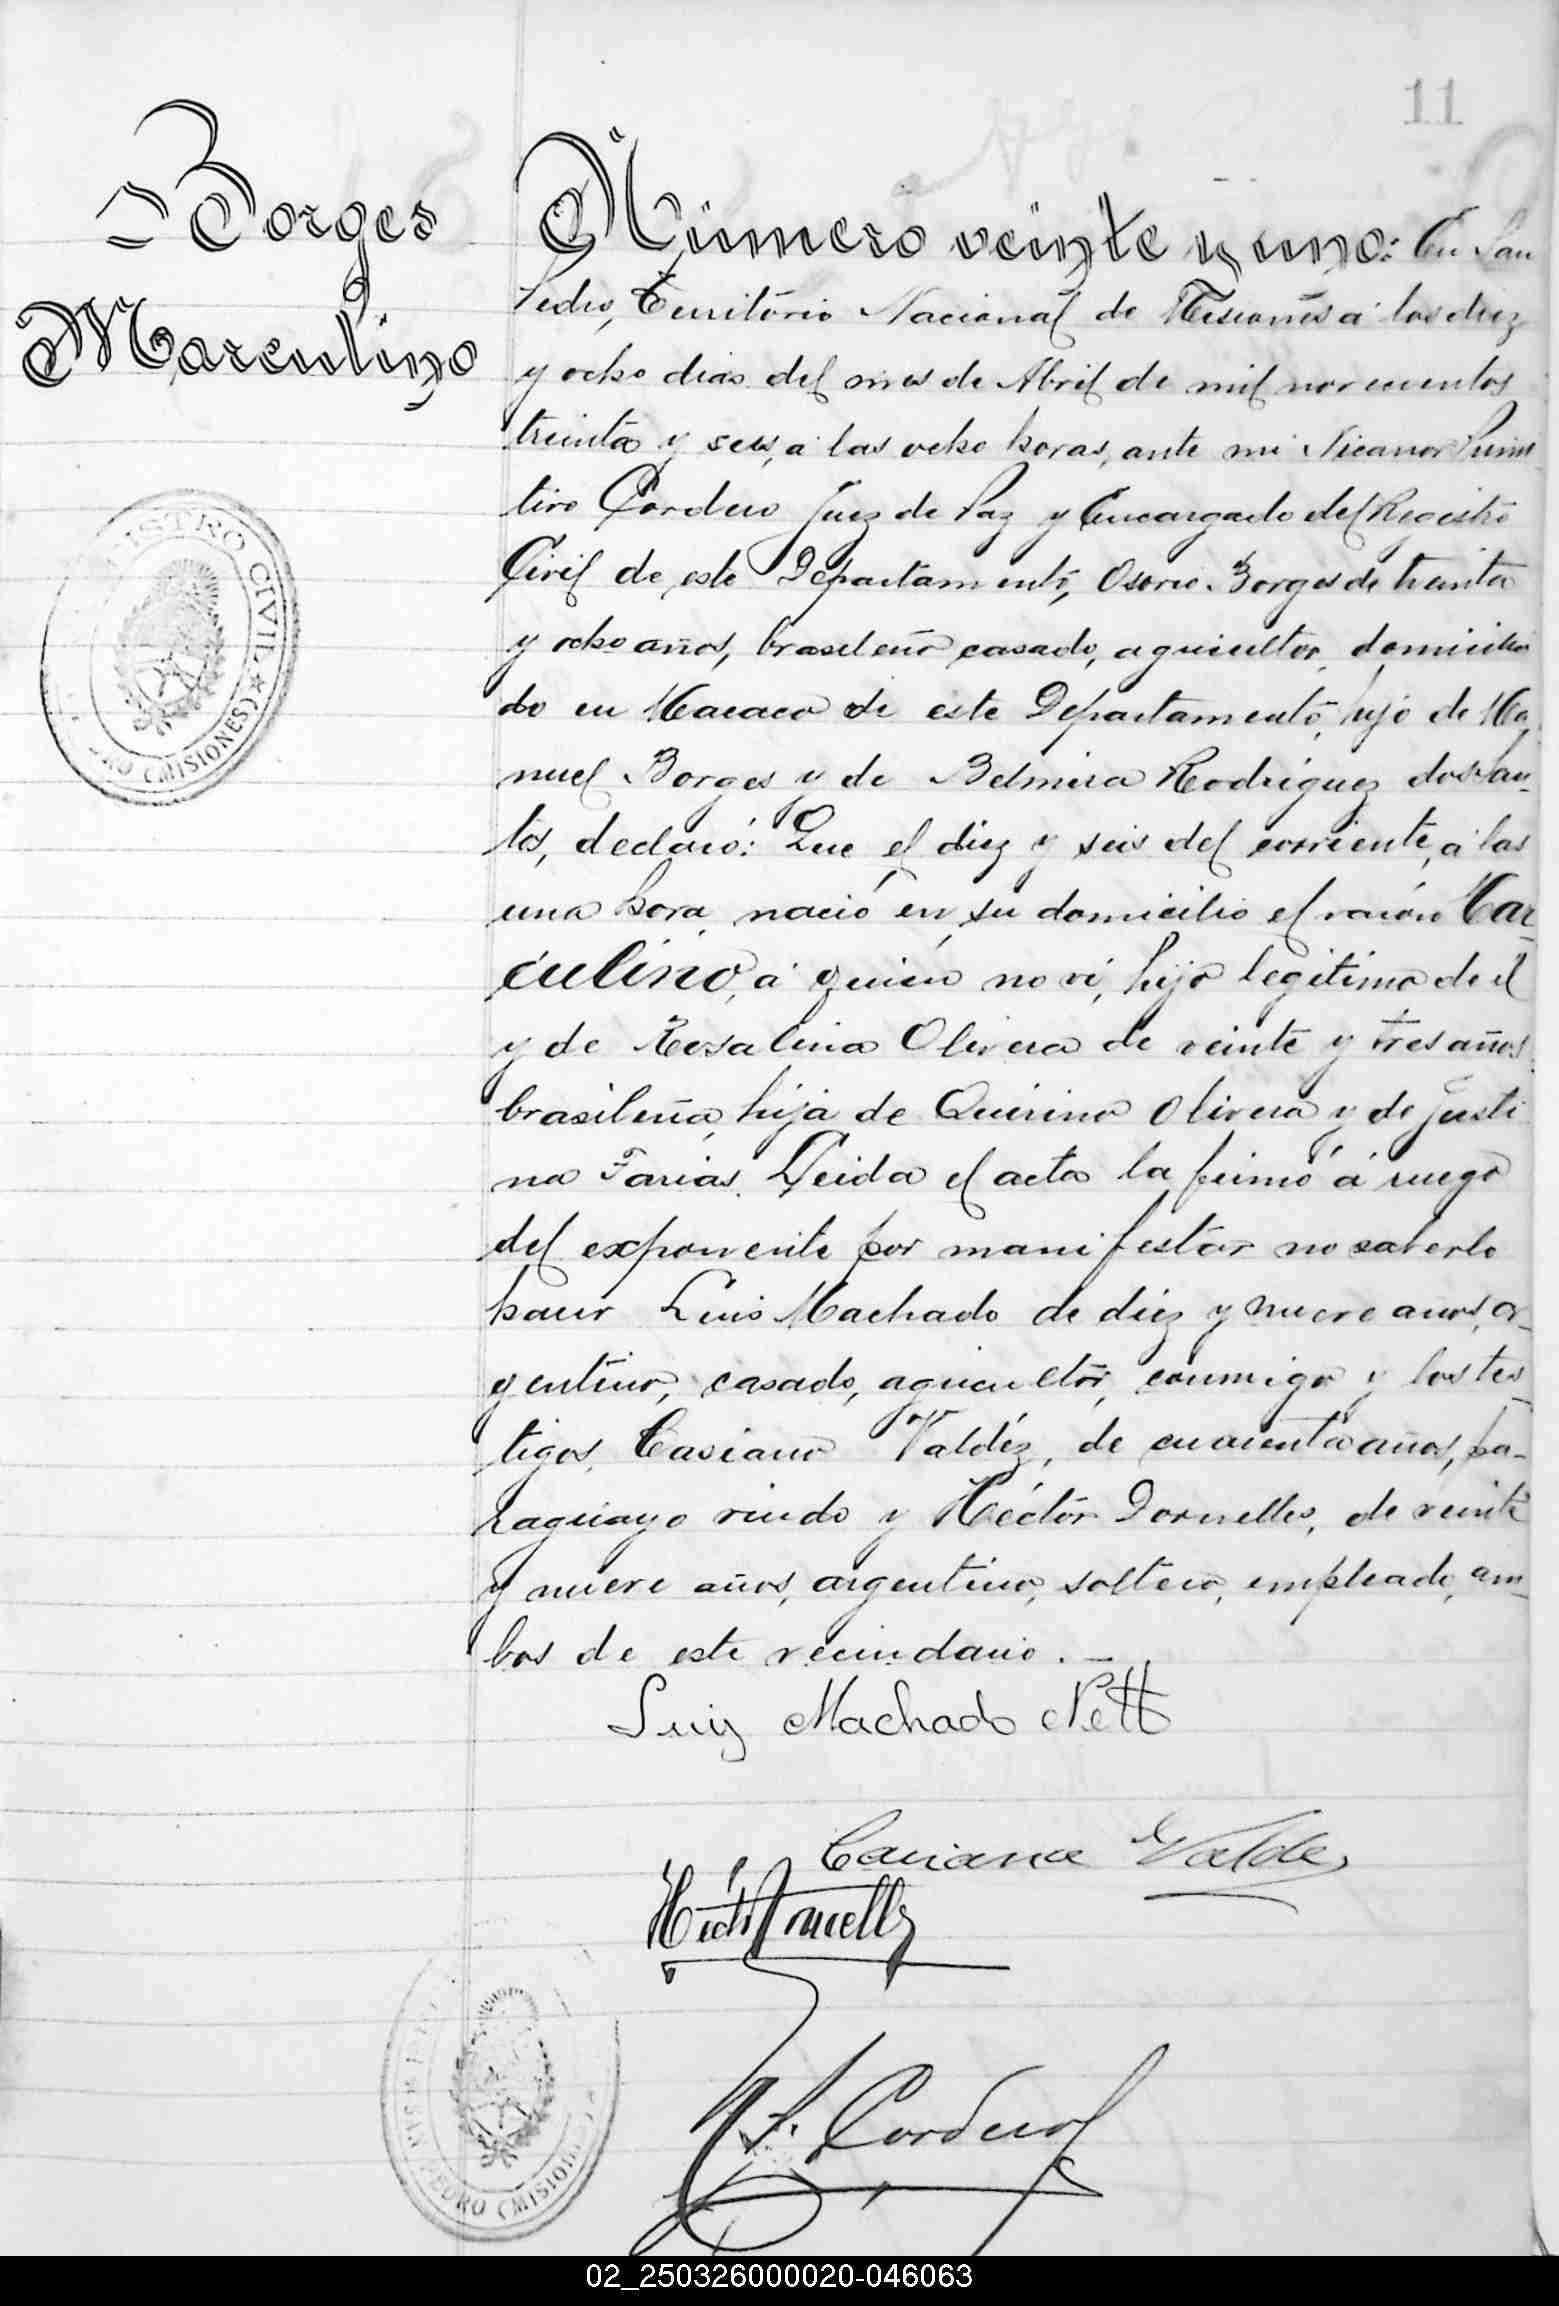 11
Borges
Marculino
Número veinte y uno: En San
Pedro, Território Nacional de Misiones á los diez
y ocho dias del mes de Abril de mil novecientos
treinta y seis, á las ocho horas, ante mi Nicanor Primi
tivo Cordero Juez de Paz y Encargado del Registro
Civil de este Departamento, Osorio Borges de treinta
y ocho años, brasileño casado, agricultor, domicilia
do en Macaco de este Departamento, hijo de Ma
nuel Borges y de Belmira Rodriguez dos San-
tos, declaró: Que el diez y seis del corriente, á las
una hora, nació en su domicilio el varón Mar-
culino, á quién no vi, hijo legítimo de él
y de Rosalina Olivera de veinte y tres años
brasileña, hija de Quirino Olivera y de Justi
na Farias. Leida el acta la firmó á ruego
del exponente por manifestar no saberlo
hacer Luis Machado de diez y nueve anos, ar-
gentino, casado, agricultor, conmigo y los tes-
tigos, Casiano Valdéz, de cuarenta años, pa-
raguayo viudo y Héctor Dornelles, de veinte
y nueve años, argentino, soltero, empleado, am-
bos de este vecindario. -
Luiz Machado Nett
Casiano Valde
Héct Dornelles
N. P. Cordero
REGISTRO CIVIL ★ (MISIONES)
SAN PEDRO (MISIONES)
02_250326000020-046063